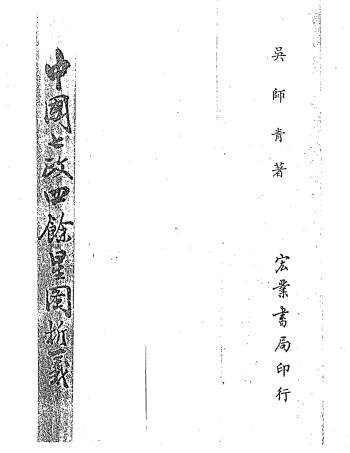 吳師青著
宏業書局印行
中國七政四餘星圖析義